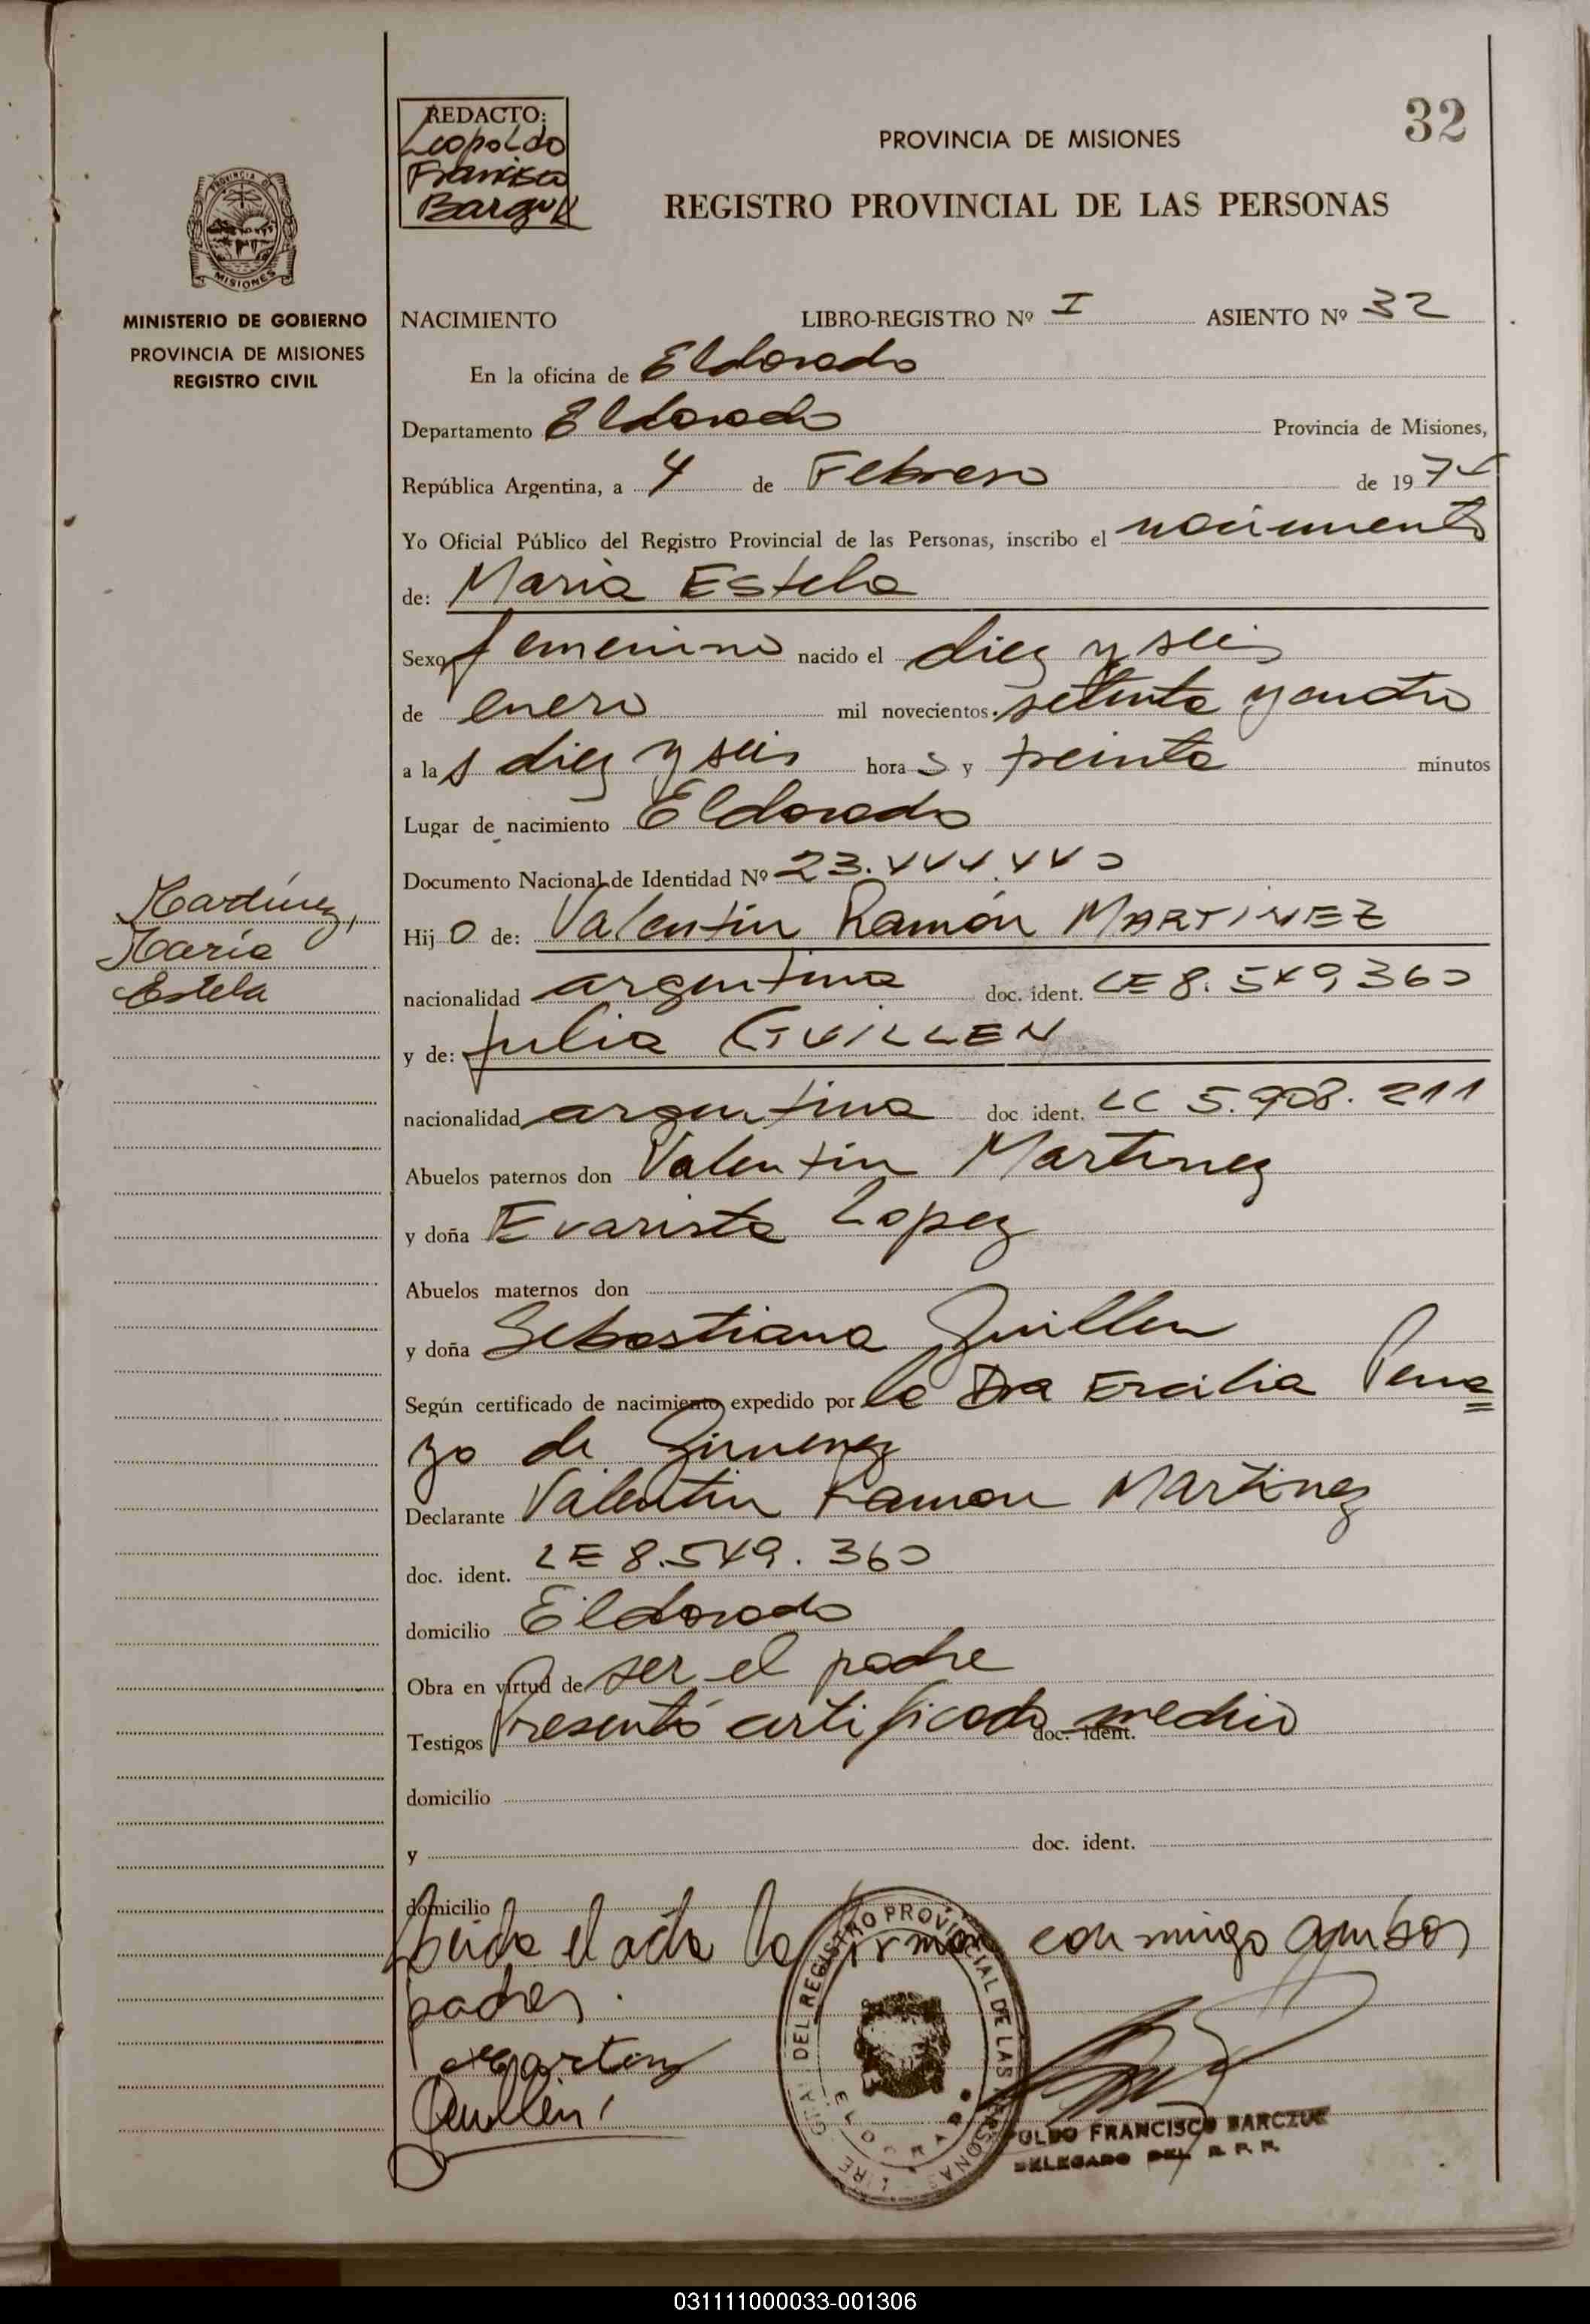 32
REDACTO:
Leopoldo
Francisco
PROVINCIA DE MISIONES
REGISTRO PROVINCIAL DE LAS PERSONAS
PROVINCIA DE
MISIONES
MINISTERIO DE GOBIERNO
PROVINCIA DE MISIONES
REGISTRO CIVIL
NACIMIENTO LIBRO-REGISTRO Nº I ASIENTO Nº 32
En la oficina de Eldorado
Departamento Eldorado Provincia de Misiones,
República Argentina, a 4 de Febrero de 1974
Yo Oficial Público del Registro Provincial de las Personas, inscribo el nacimiento
de: Maria Estela
Sexo femenino nacido el diez y seis
de enero mil novecientos setenta y cuatro
a las diez y seis horas y treinta minutos
Lugar de nacimiento Eldorado
Documento Nacional de Identidad Nº 23.444.440
Martínez,
María
Estela
Hijo de: Valentin Ramón MARTINEZ
nacionalidad argentina doc. ident. LE 8.549.360
y de: Julia GUILLEN
nacionalidad argentina doc. ident. LC 5.908.211
Abuelos paternos don Valentin Martinez
y doña Evarista Lopez
Abuelos maternos don
y doña Sebastiana Guillen
Según certificado de nacimiento expedido por la Dra Ercilia Pena
zo de Gimenez
Declarante Valentin Ramon Martinez
doc. ident. LE 8.549.360
domicilio Eldorado
Obra en virtud de ser el padre
Testigos Presentó certificado medico doc. ident.
domicilio
y doc. ident.
domicilio
Leida el acta la firman conmigo ambos
padres.
Guillen
DEL REGISTRO PROVINCIAL DE LAS PERSONAS
ELDORADO
FRANCISCO BARCZUK
DELEGADO DEL R. P. P.
031111000033-001306